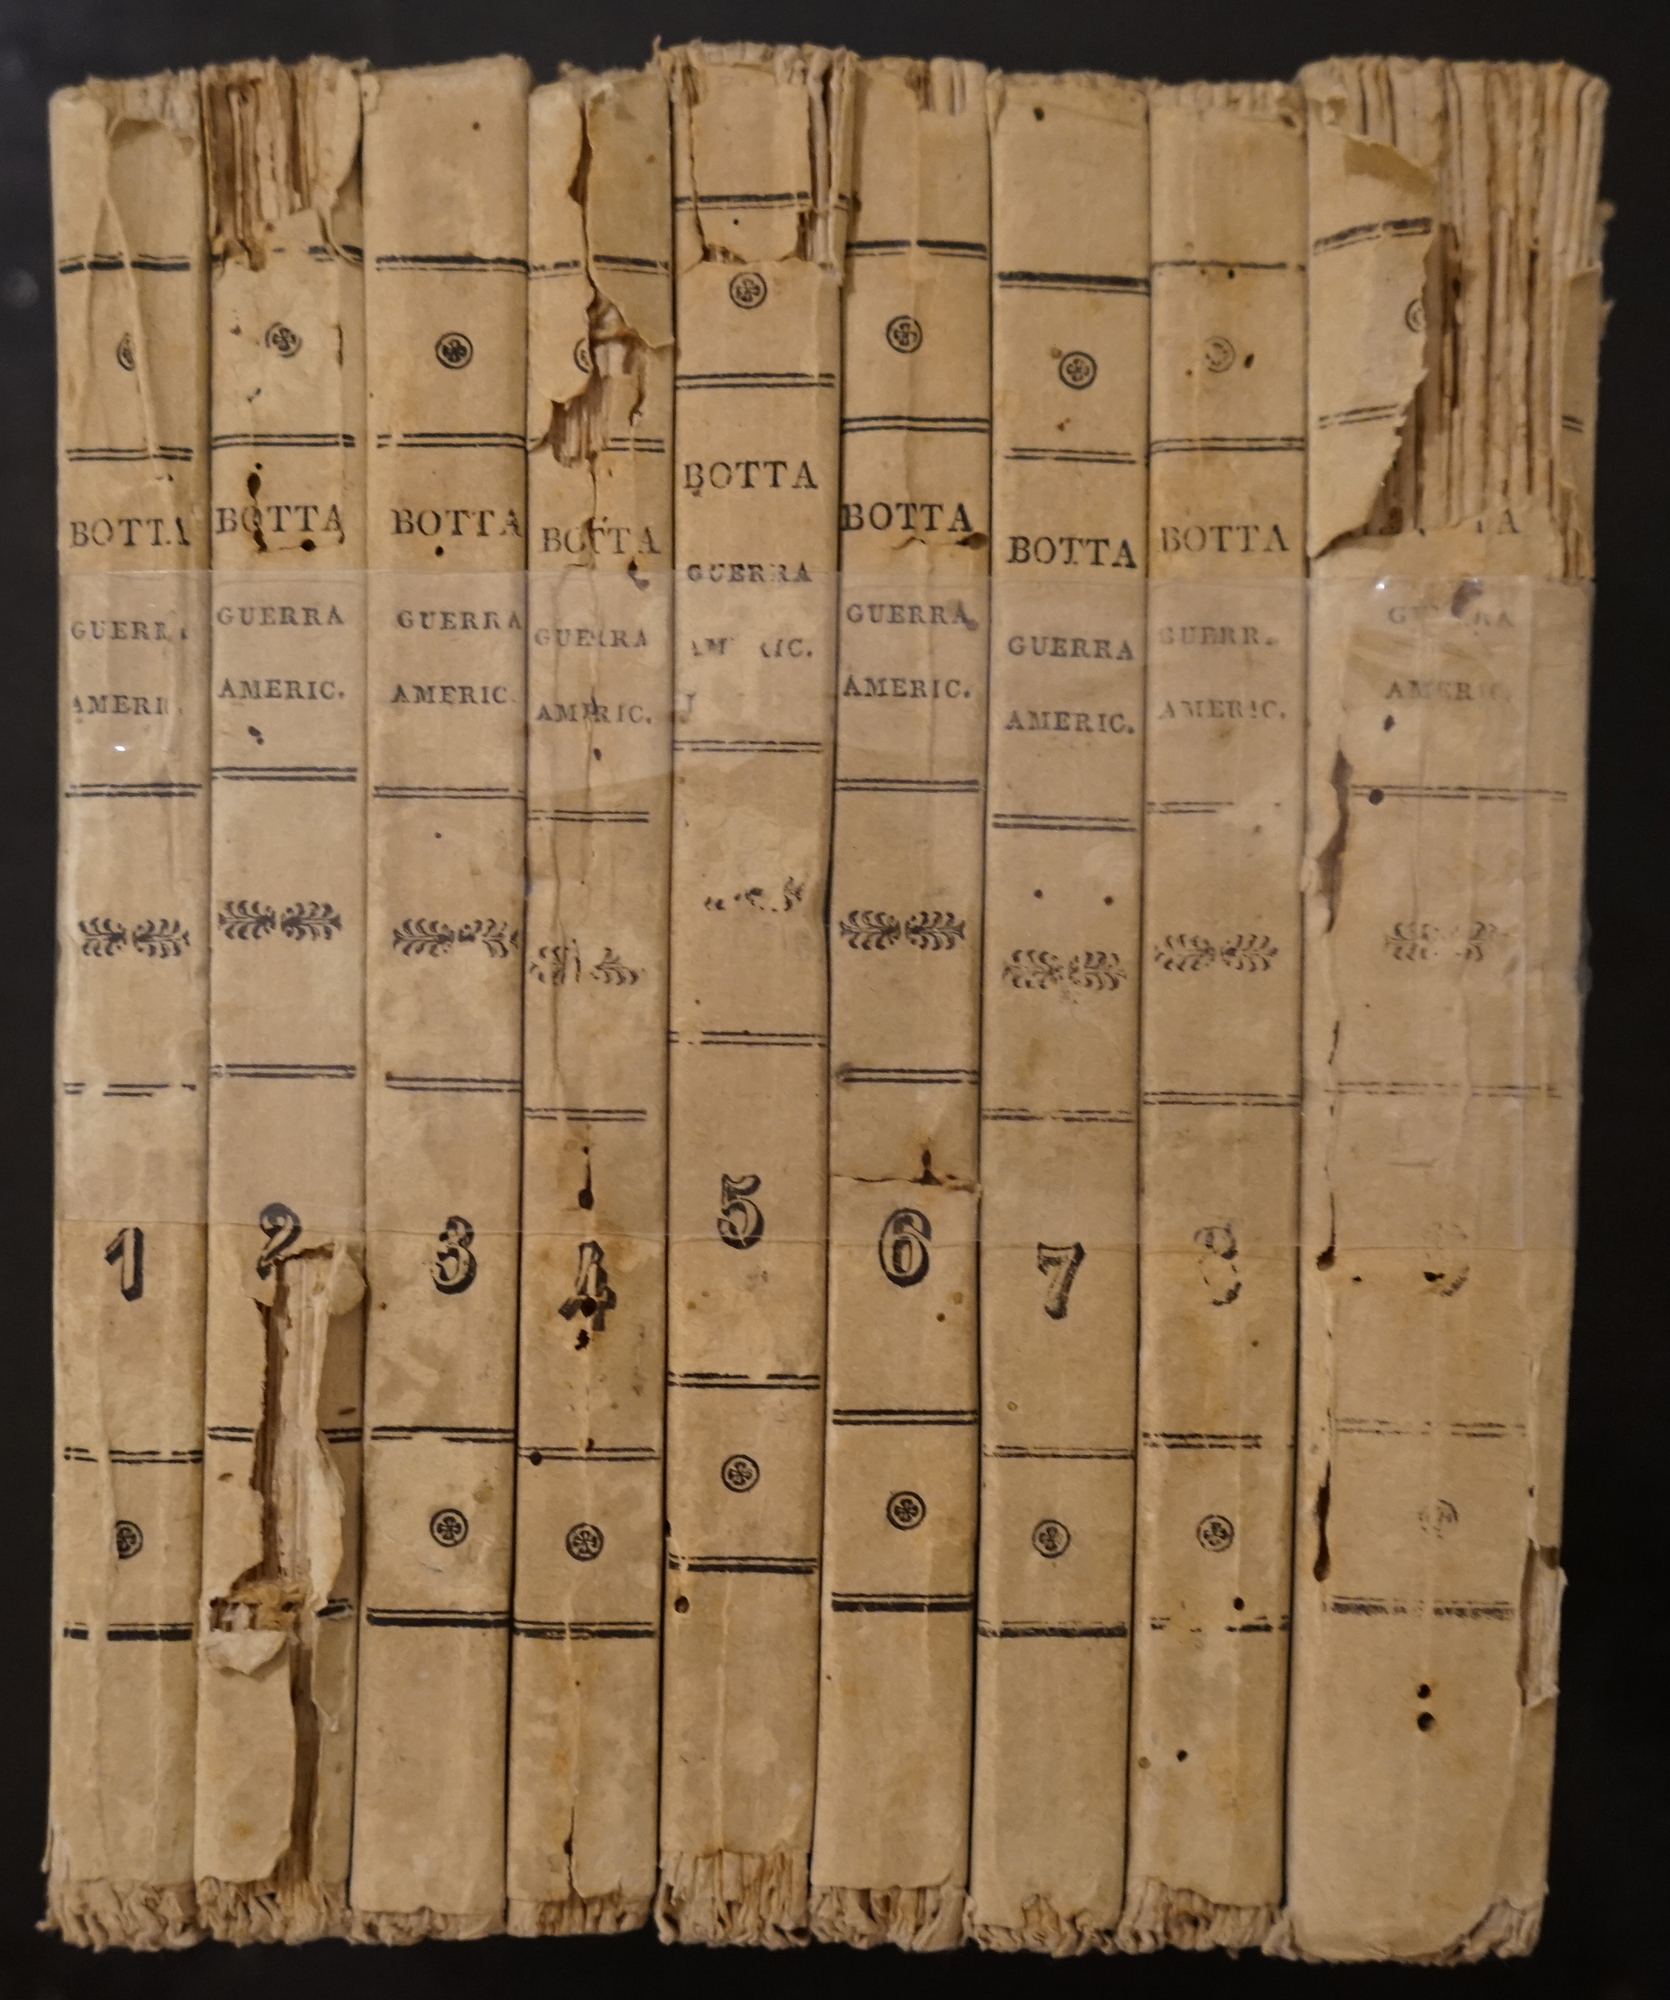 BOTTA
GUERRA
AMERIC.
1
BOTTA
GUERRA
AMERIC.
2
BOTTA
GUERRA
AMERIC.
3
BOTTA
GUERRA
AMERIC.
4
BOTTA
GUERRA
AMERIC.
5
BOTTA
GUERRA
AMERIC.
6
BOTTA
GUERRA
AMERIC.
7
BOTTA
GUERRA
AMERIC.
8
GUERRA
AMERIC.